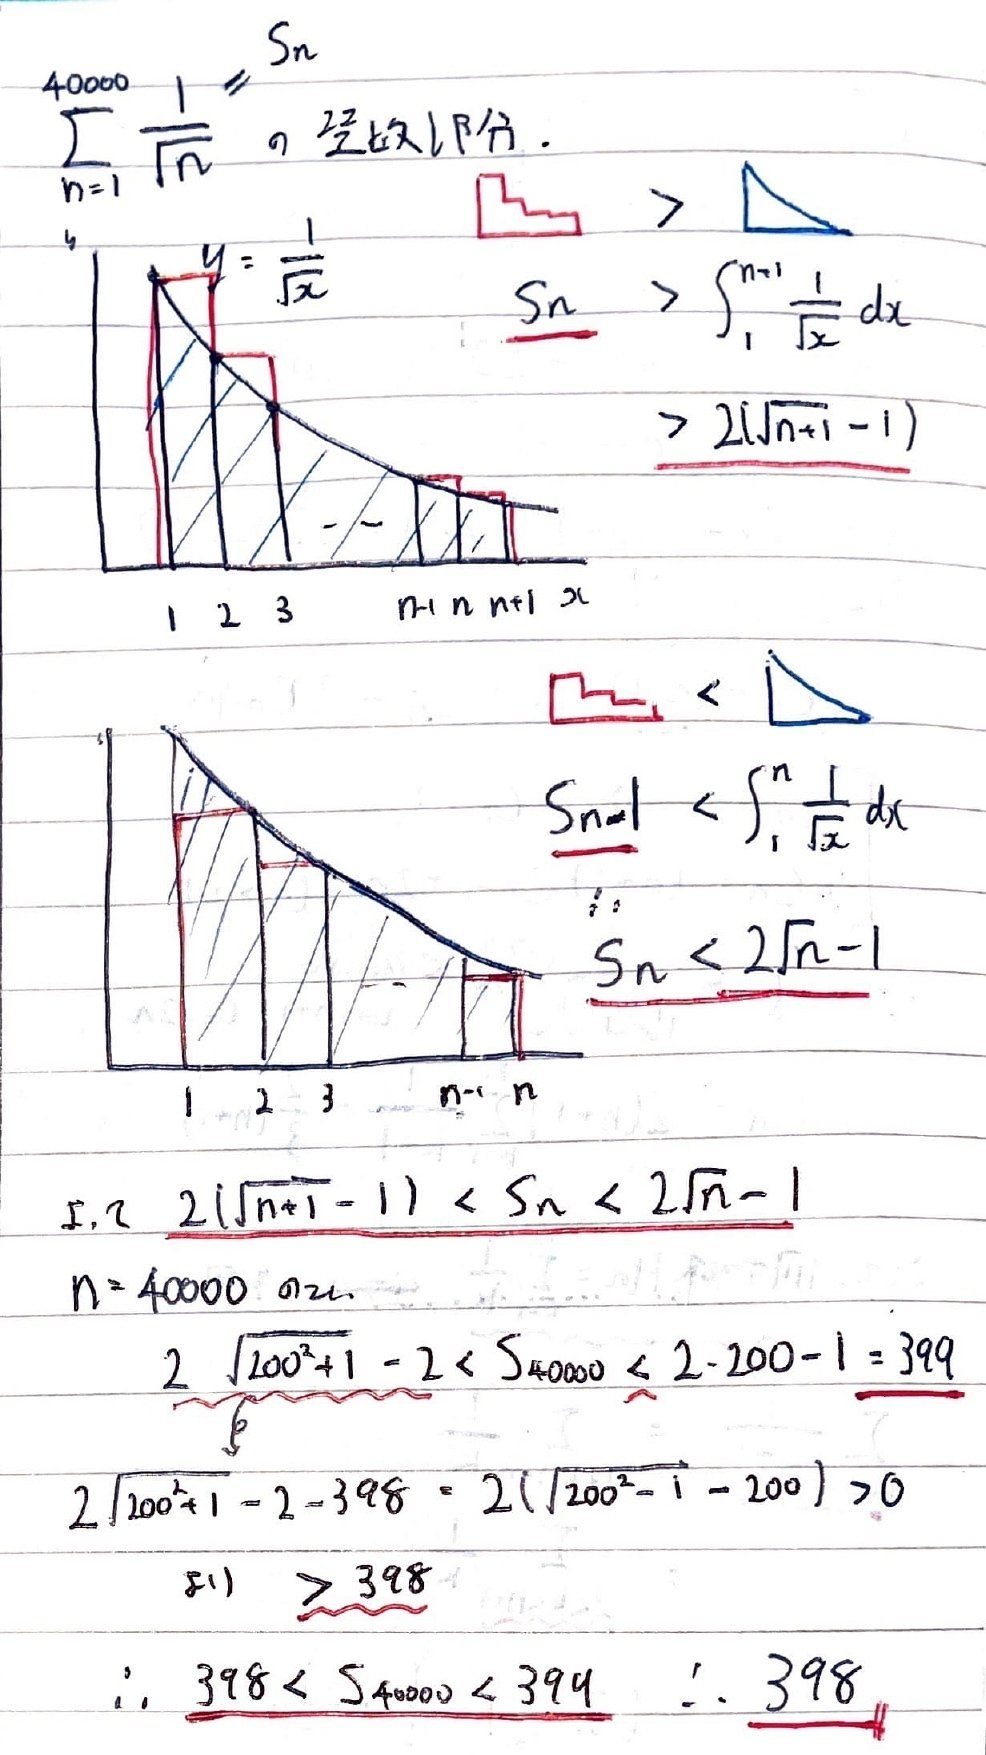 Sn
40000
Σ 1/√n の整数部分.
n=1
y = 1/√x
>
Sn > ∫₁ⁿ⁺¹ 1/√x dx
> 2(√n+1 - 1)
1 2 3 n-1 n n+1 x
<
Sn-1 < ∫₁ⁿ 1/√x dx
∴
Sn < 2√n - 1
1 2 3 n-1 n
よって 2(√n+1 - 1) < Sn < 2√n - 1
n = 40000 のとき
2 √200²+1 - 2 < S40000 < 2・200 - 1 = 399
2√200²+1 - 2 - 398 = 2(√200²-1 - 200) > 0
より > 398
∴ 398 < S40000 < 399 ∴ 398